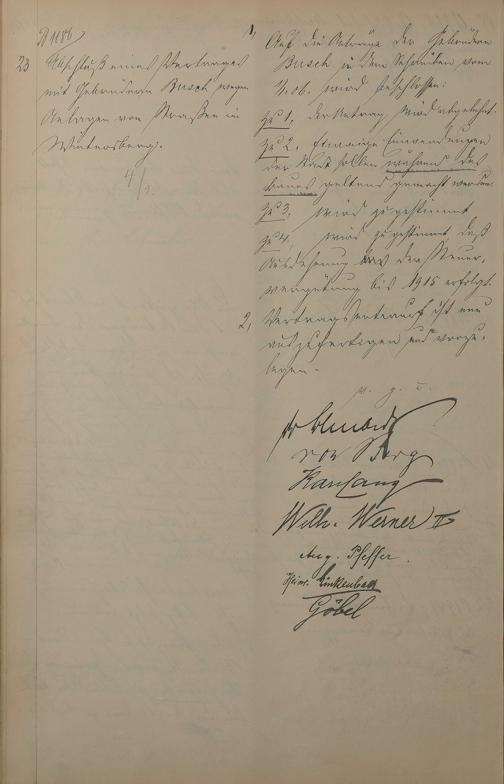 D 1186
23 Abschluß eines Vertrages
mit Gebrüdern Busch wegen
Anlagen von Straßen in
Wintersberg.
4/3.
1, Auf die Anträge der Gebrüder
Busch in dem Schreiben vom
wird beschlossen:
Zu 1, der Antrag wird abgelehnt.
Zu 2, Etwaige Einwendungen
der Stadt sollen während des
Baues geltend gemacht werden
Zu 3, wird zugestimmt
Zu 4, wird zugestimmt daß
Ausdehnung der Steuer-
vergütung bis 1915 erfolgt.
2, Vertragsentwurf ist neu
auszufertigen und vorzu-
legen.
v. g. u.
von Berg
Wilh. Werner II
Aug. Pfeffer.
Heinr. Linkenbach
Göbel